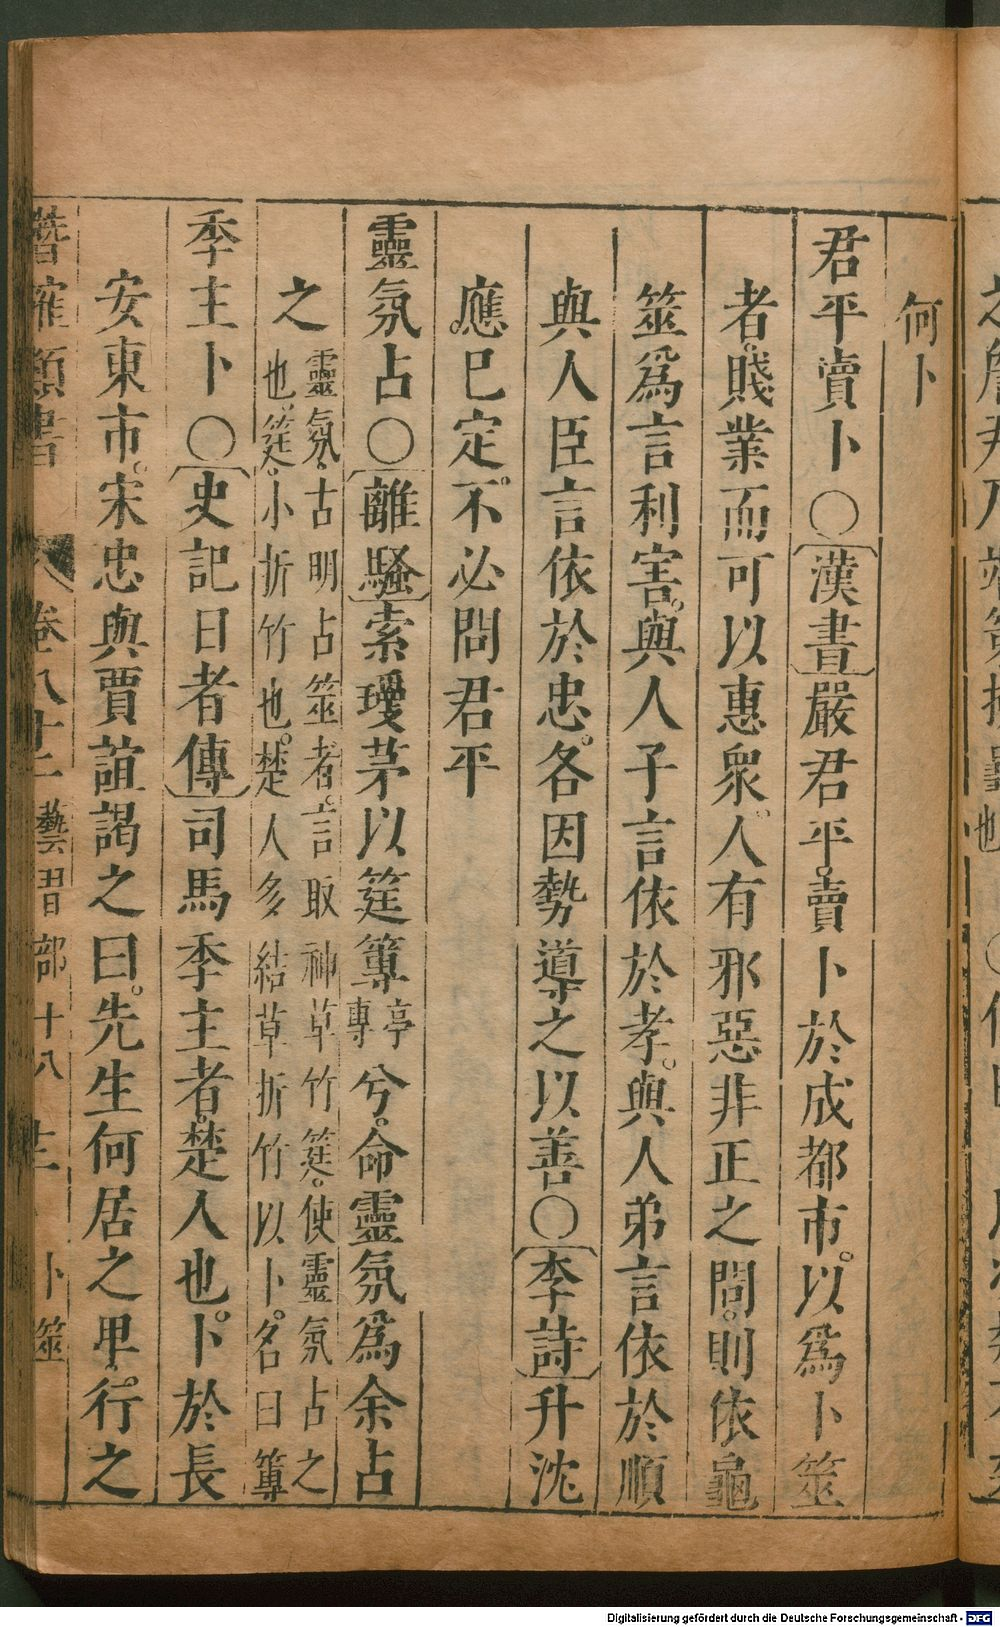 何卜
君平賣卜○漢書嚴君平。賣卜於成都市。以爲卜筮
者。賤業而可以惠衆。人有邪惡非正之問。則依龜
筮爲言利害。與人子言依於孝。與人弟言依於順
與人臣言依於忠。各因勢導之以善○李詩升沈
應已定。不必問君平
靈氛占○離騷索瓊茅以筳篿亭專兮。命靈氛爲余占
之靈氛。古明占筮者。言取神草竹筳。使靈氛占之
也。筳。小折竹也。楚人多結草折竹以卜。名曰篿
季主卜○史記日者傳司馬季主者。楚人也。卜於長
安東市。宋忠與賈誼謁之曰。先生何居之卑。行之
卷八十二 藝習部十八 卜筮
Digitalisierung gefördert durch die Deutsche Forschungsgemeinschaft - DFG